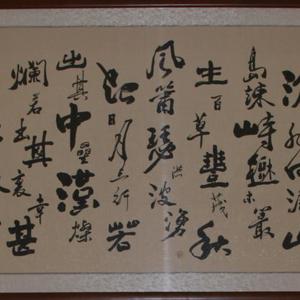 島竦峙樹木叢
生百草豐茂秋
風蕭瑟洪波湧
起日月之行若
出其中星漢燦
爛若出其裏幸甚